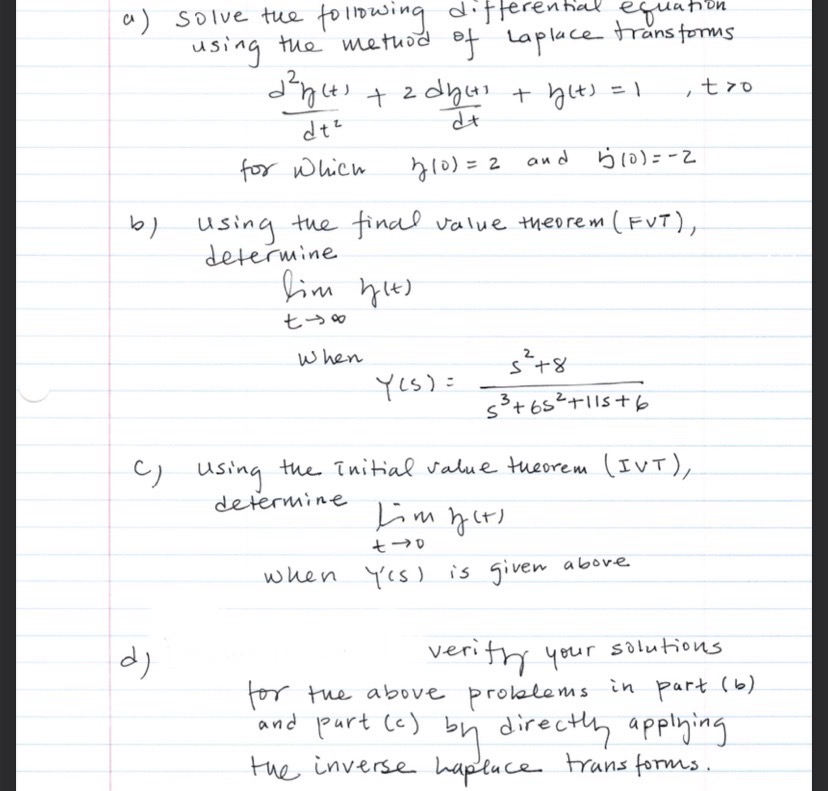 a) solve the following differential equation
using the method of Laplace transforms
d²y(t)/dt² + 2 dy(t)/dt + y(t) = 1 , t>0
for which y(0) = 2 and ẏ(0) = -2
b) using the final value theorem (FVT),
determine
lim y(t)
t→∞
when
Y(s) = (s²+8)/(s³+6s²+11s+6)
c) using the initial value theorem (IVT),
determine
Lim y(t)
t→0
when Y(s) is given above
d) verify your solutions
for the above problems in part (b)
and part (c) by directly applying
the inverse Laplace transforms.